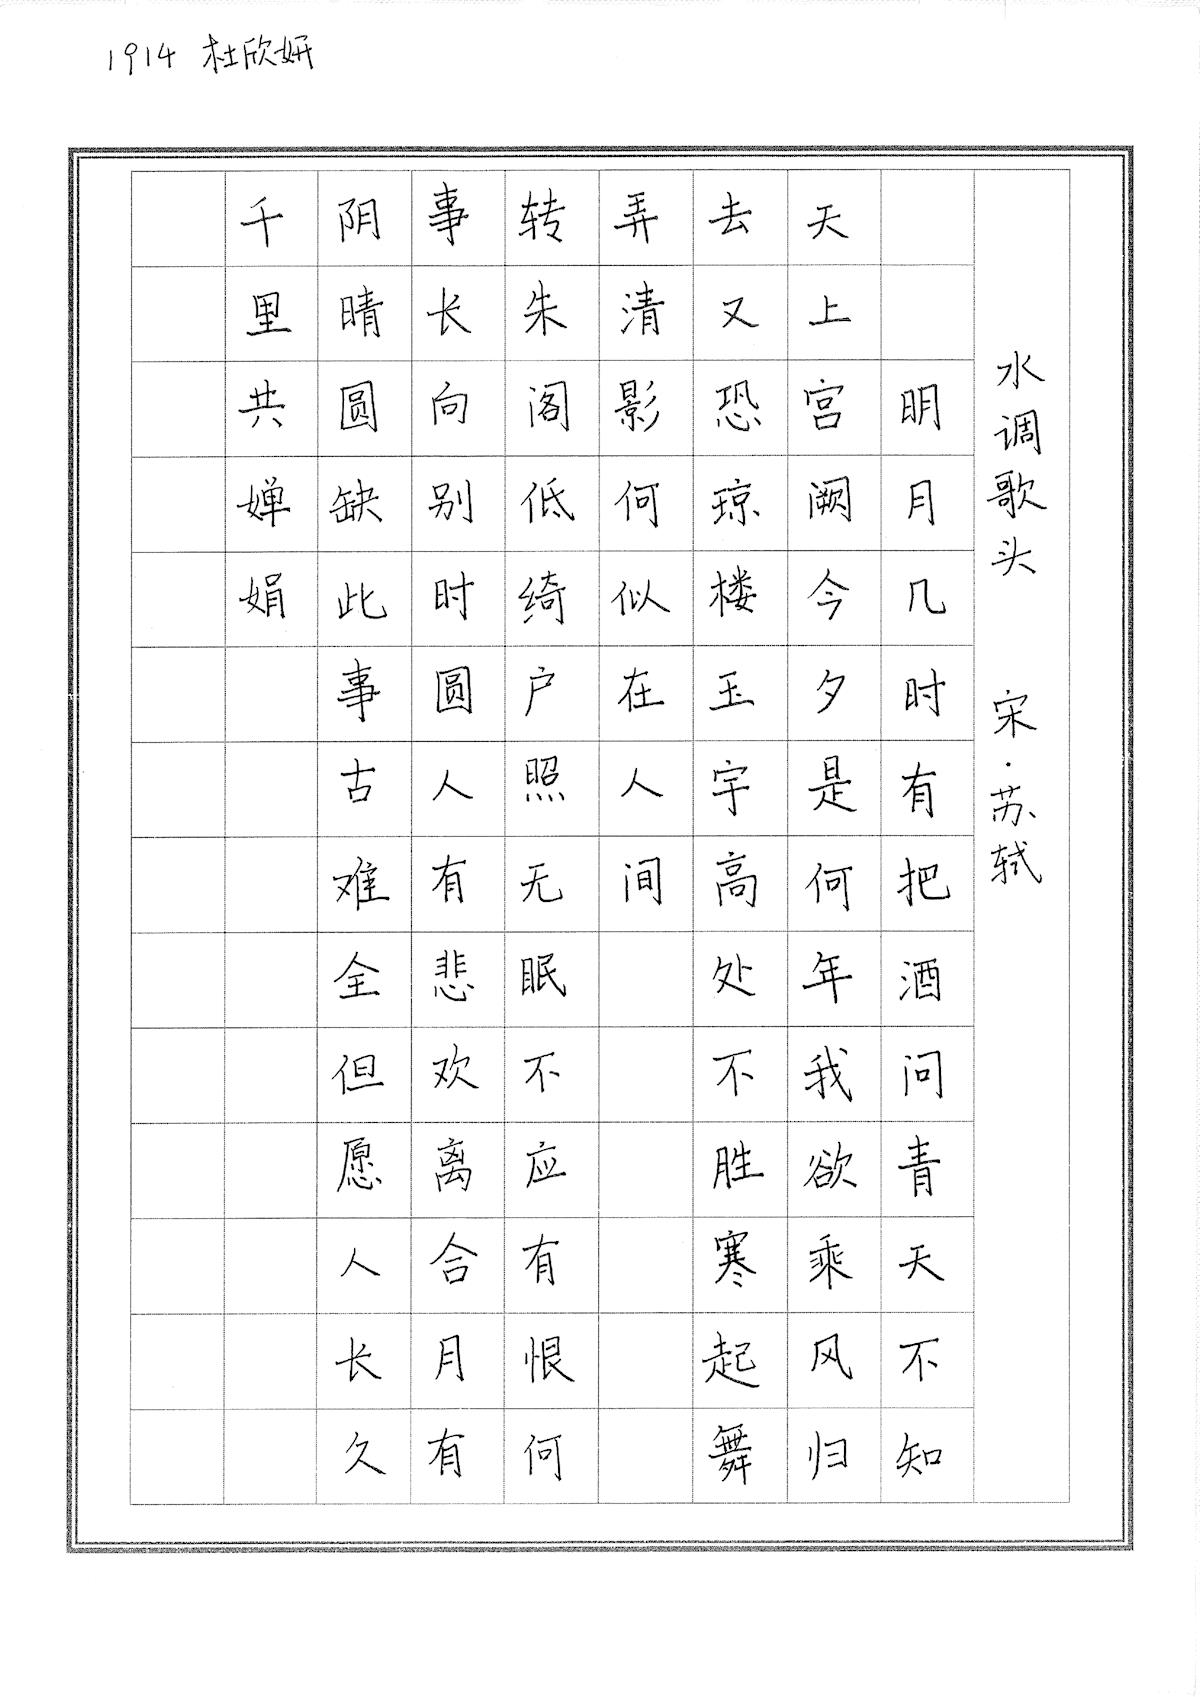 1914 杜欣妍
水调歌头 宋·苏轼
明月几时有把酒问青天不知
天上宫阙今夕是何年我欲乘风归
去又恐琼楼玉宇高处不胜寒起舞
弄清影何似在人间
转朱阁低绮户照无眠不应有恨何
事长向别时圆人有悲欢离合月有
阴晴圆缺此事古难全但愿人长久
千里共婵娟